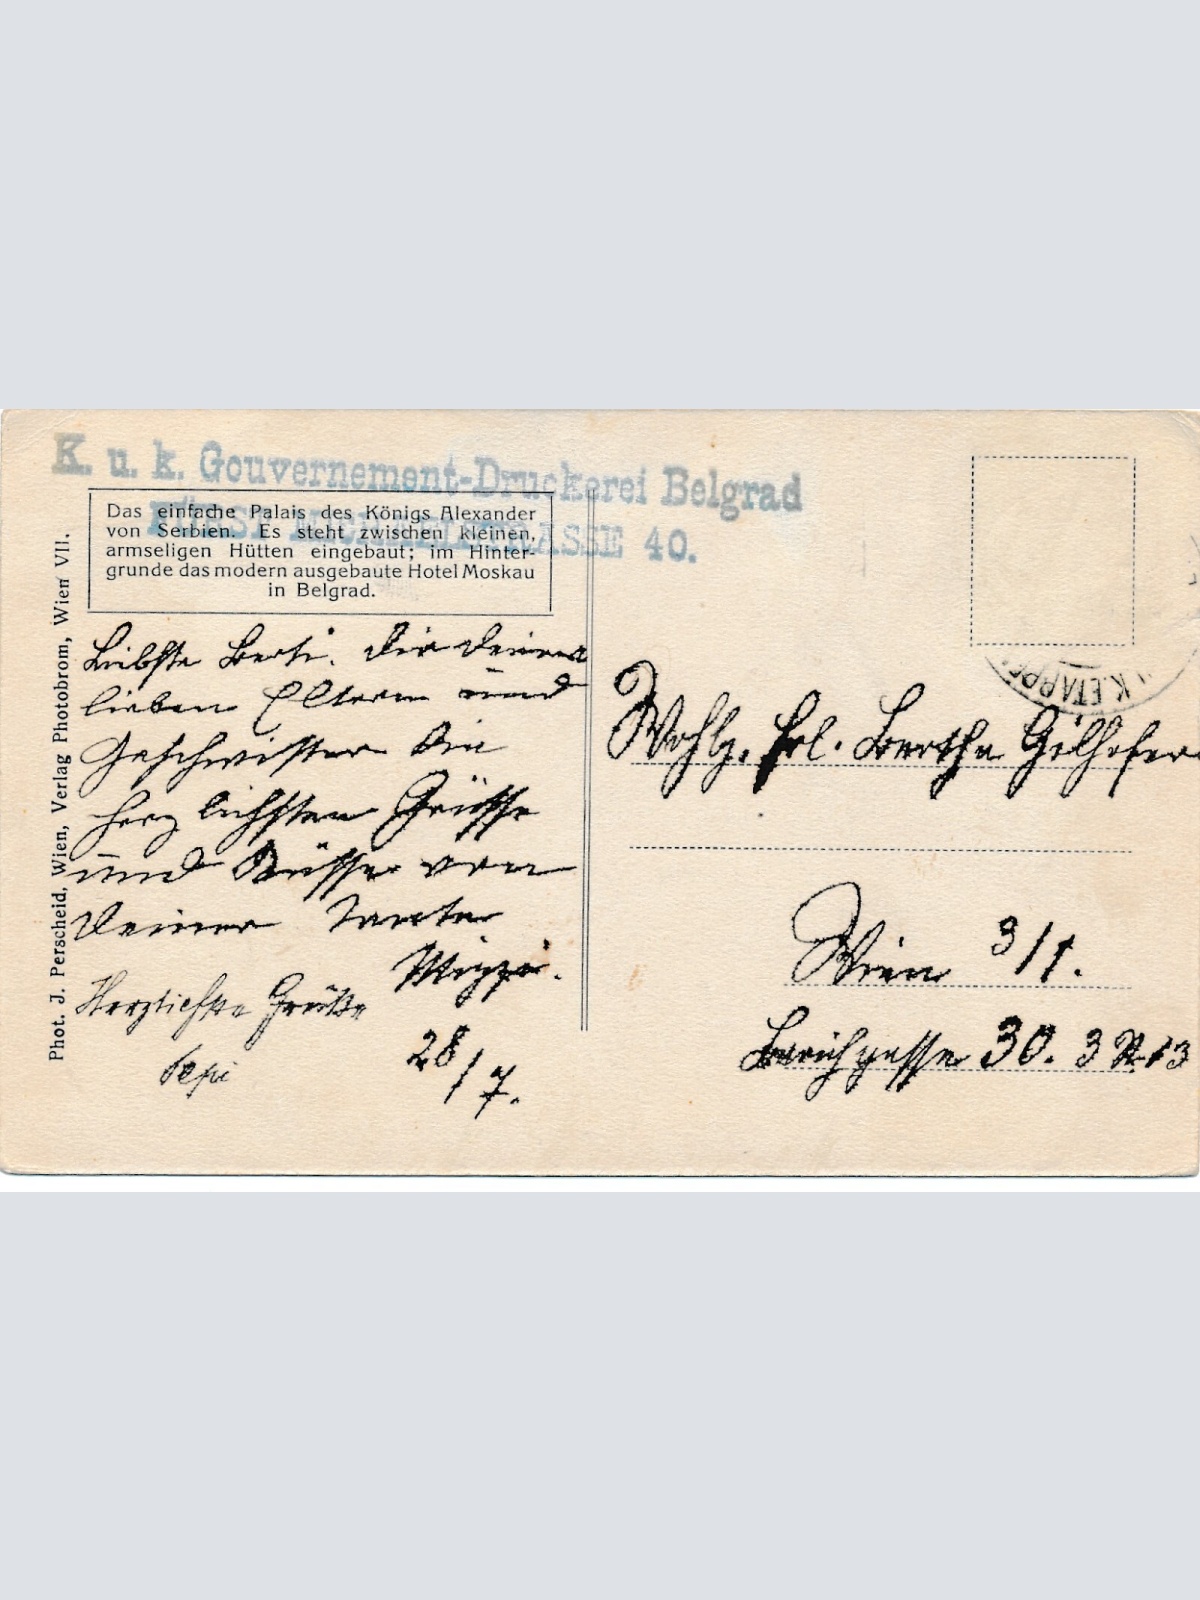 K. u. k. Gouvernement-Druckerei Belgrad
FÜRST MICHAELSTRASSE 40.
Das einfache Palais des Königs Alexander
von Serbien. Es steht zwischen kleinen,
armseligen Hütten eingebaut; im Hinter-
grunde das modern ausgebaute Hotel Moskau
in Belgrad.
Phot. J. Perscheid, Wien, Verlag Photobrom, Wien VII.
Liebste Berti. Dir Deinen
lieben Eltern und
Geschwister die
herzlichsten Grüsse
und Küsse von
Deiner Tante
Mizzi.
Herzlichste Grüße
Pepi
28/7.
K. ETAPPE
Wohlg. Frl. Bertha Gilhofer
Wien 3/1.
30. 3 13